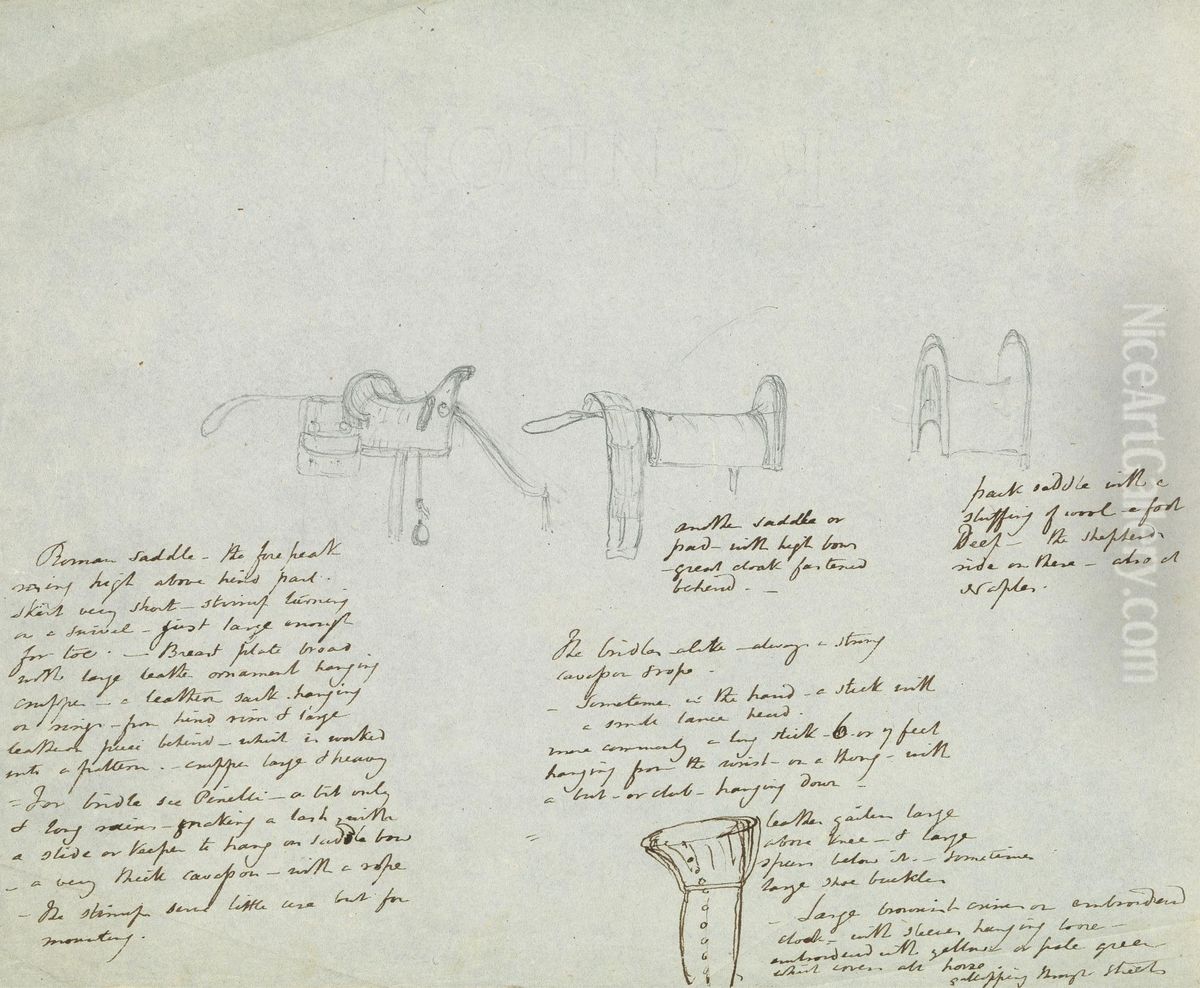 LONDON
Roman saddle - the fore peak
rising high above hind part.
skirt very short - stirrup turning
on a swivel - just large enough
for toe. - Breast plate broad
with large leather ornament hanging
crupper - a leathern sack hanging
on rings - from hind rim & large
leathern piece behind - which is worked
into a pattern. - crupper large & heavy
= For bridle see Pinelli - a bit only
& long reins - making a lash, with
a slide or keeper to hang on saddle bow
- a very thick cavesson - with a rope
- The stirrup serve little use but for
mounting.
another saddle or
pad - with high bow
- great cloak fastened
behind. -
pack saddle with a
stuffing of wool - a foot
Deep - the shepherds
ride on these - also at
Naples.
The bridles alike - always a strong
cavesson & rope -
- Sometimes in the hand - a stick with
a small lance head.
more commonly a long stick - 6 or 7 feet
hanging from the wrist - on a thong - with
a but - or club - hanging down -
=
leather gaiters large
above knee - & large
spurs below it. - sometimes
large shoe buckles
- Large brownish crimson embroidered
cloak - with sleeves hanging loose -
embroidered with yellow or pale green
which covers all horse.
galloping through streets
NiceArtGallery.com